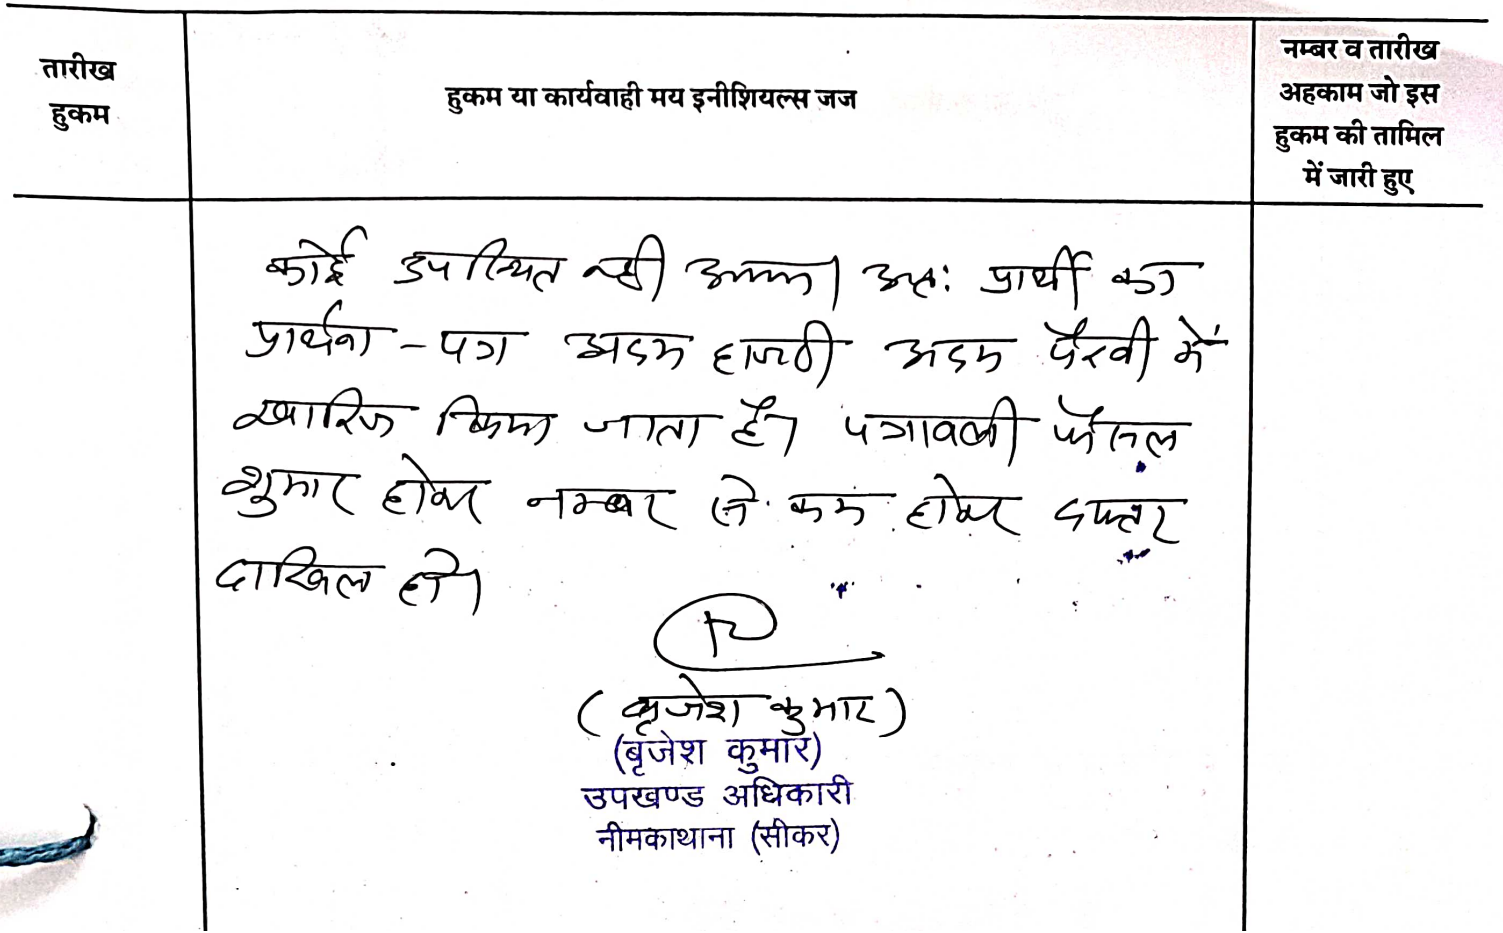 तारीख
हुकम
हुकम या कार्यवाही मय इनीशियल्स जज
नम्बर व तारीख
अहकाम जो इस
हुकम की तामिल
में जारी हुए
कोई उपस्थित नही आया। अतः प्रार्थी का
प्रार्थना-पत्र अदम हाजरी अदम पैरवी में
खारिज किया जाता है। पत्रावली फैसल
शुमार होकर नम्बर से कम होकर दफ्तर
दाखिल हो।
(बृजेश कुमार)
(बृजेश कुमार)
उपखण्ड अधिकारी
नीमकाथाना (सीकर)